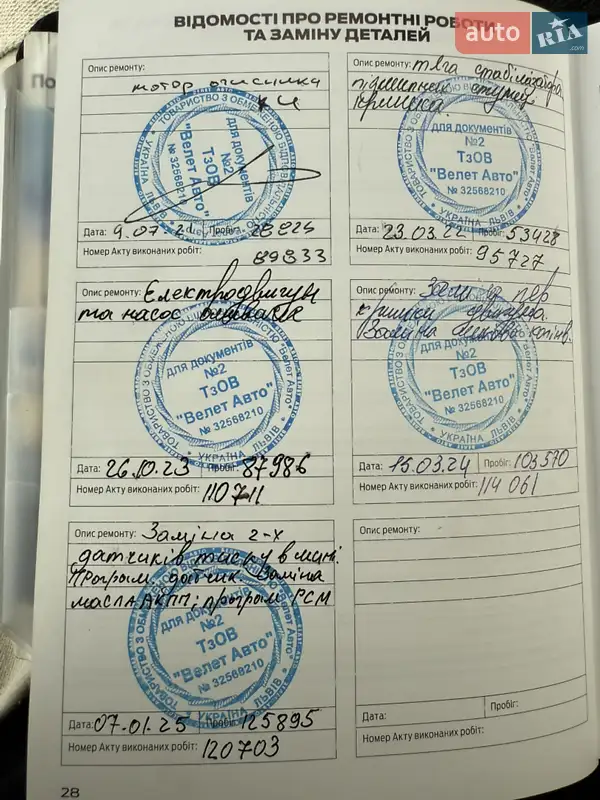 ВІДОМОСТІ ПРО РЕМОНТНІ РОБОТИ
ТА ЗАМІНУ ДЕТАЛЕЙ
auto RIA.com
По
Опис ремонту:
мотор очисника
ТОВАРИСТВО З ОБМЕЖЕНОЮ ВІДПОВІДАЛЬНІСТЮ
УКРАЇНА ЛЬВІВ
для документів
№2
ТзОВ
"Велет Авто"
№ 32568210
Дата: 9.07.21 Пробіг:
Номер Акту виконаних робіт:
89833
Опис ремонту: тяга стабілізатора
підшипник ступиці
кришка
для документів
№2
ТзОВ
"Велет Авто"
№ 32568210
УКРАЇНА ЛЬВІВ
Дата: 23.03.22 Пробіг: 53428
Номер Акту виконаних робіт:
95727
Опис ремонту: Електродвигун
та насос
для документів
№2
ТзОВ
"Велет Авто"
№ 32568210
ТОВАРИСТВО З ОБМЕЖЕНОЮ "Велет Авто"
УКРАЇНА ЛЬВІВ
Дата: 26.10.23 Пробіг: 87986
Номер Акту виконаних робіт:
110711
Опис ремонту: пер
кришки двигуна.
Заміна
для документів
№2
ТзОВ
"Велет Авто"
№ 32568210
УКРАЇНА ЛЬВІВ
Дата: 15.03.24 Пробіг: 103570
Номер Акту виконаних робіт:
114061
Опис ремонту: Заміна 2-х
датчиків тиску в шині.
Програм. датчик. Заміна
масла АКПП; програм PCM
для документів
№2
ТзОВ
"Велет Авто"
№ 32568210
УКРАЇНА ЛЬВІВ
Дата: 07.01.25 Пробіг: 125895
Номер Акту виконаних робіт:
120703
Опис ремонту:
Дата: Пробіг:
Номер Акту виконаних робіт:
28